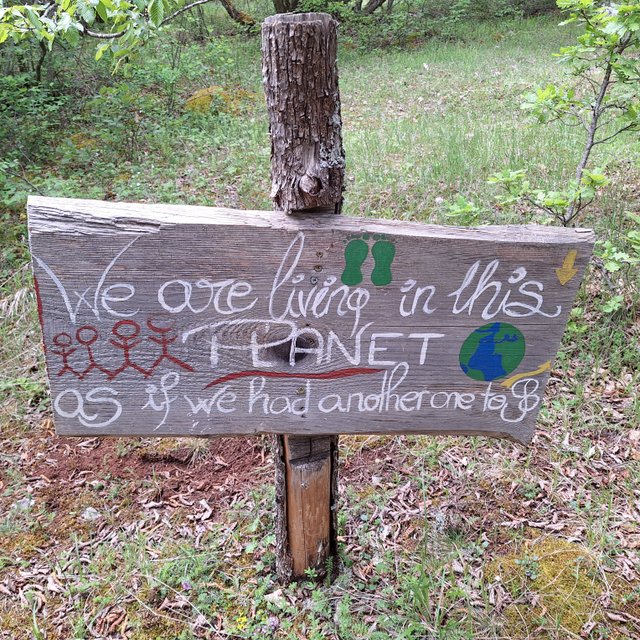 We are living in this
PLANET
as if we had another one to go